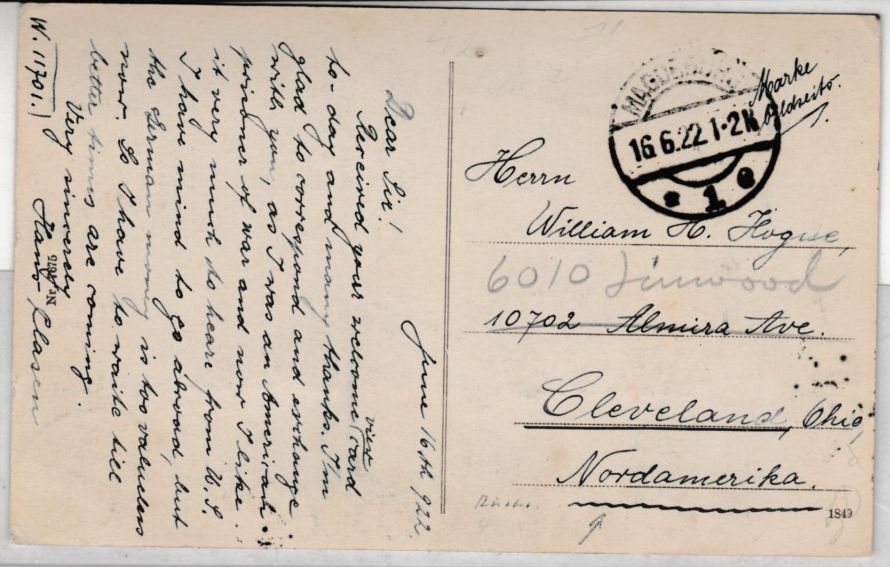 June 16th 922.
Dear Sir!
Received your welcome view card
to-day and many thanks. I'm
glad to correspond and exchange
with you, as I was an American
prisoner of war and now I like
it very much to heare from U.S.
I have mind to go abroad, but
the German money is too valuless
now. So I have to waite till
better times are coming.
Very sincerely
Hans Clasen
W. 1170 I.
Nr. 1675
MAGDEBURG
16.6.22. 1-2N
* 1 e
Marke
Bildseite.
Herrn
William H. Hogue,
6010 Linwood
10702 Almira Ave.
Cleveland, Ohio,
Nordamerika.
1849